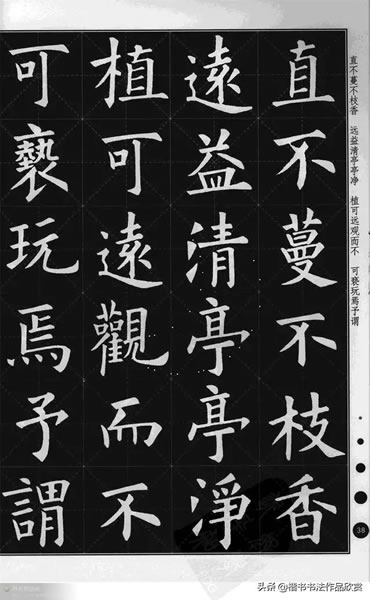 直不蔓不枝香
遠益清亭亭淨
植可遠觀而不
可褻玩焉予謂
直不蔓不枝香 远益清亭亭净 植可远观而不 可亵玩焉予谓
38
头条@楷书书法作品欣赏